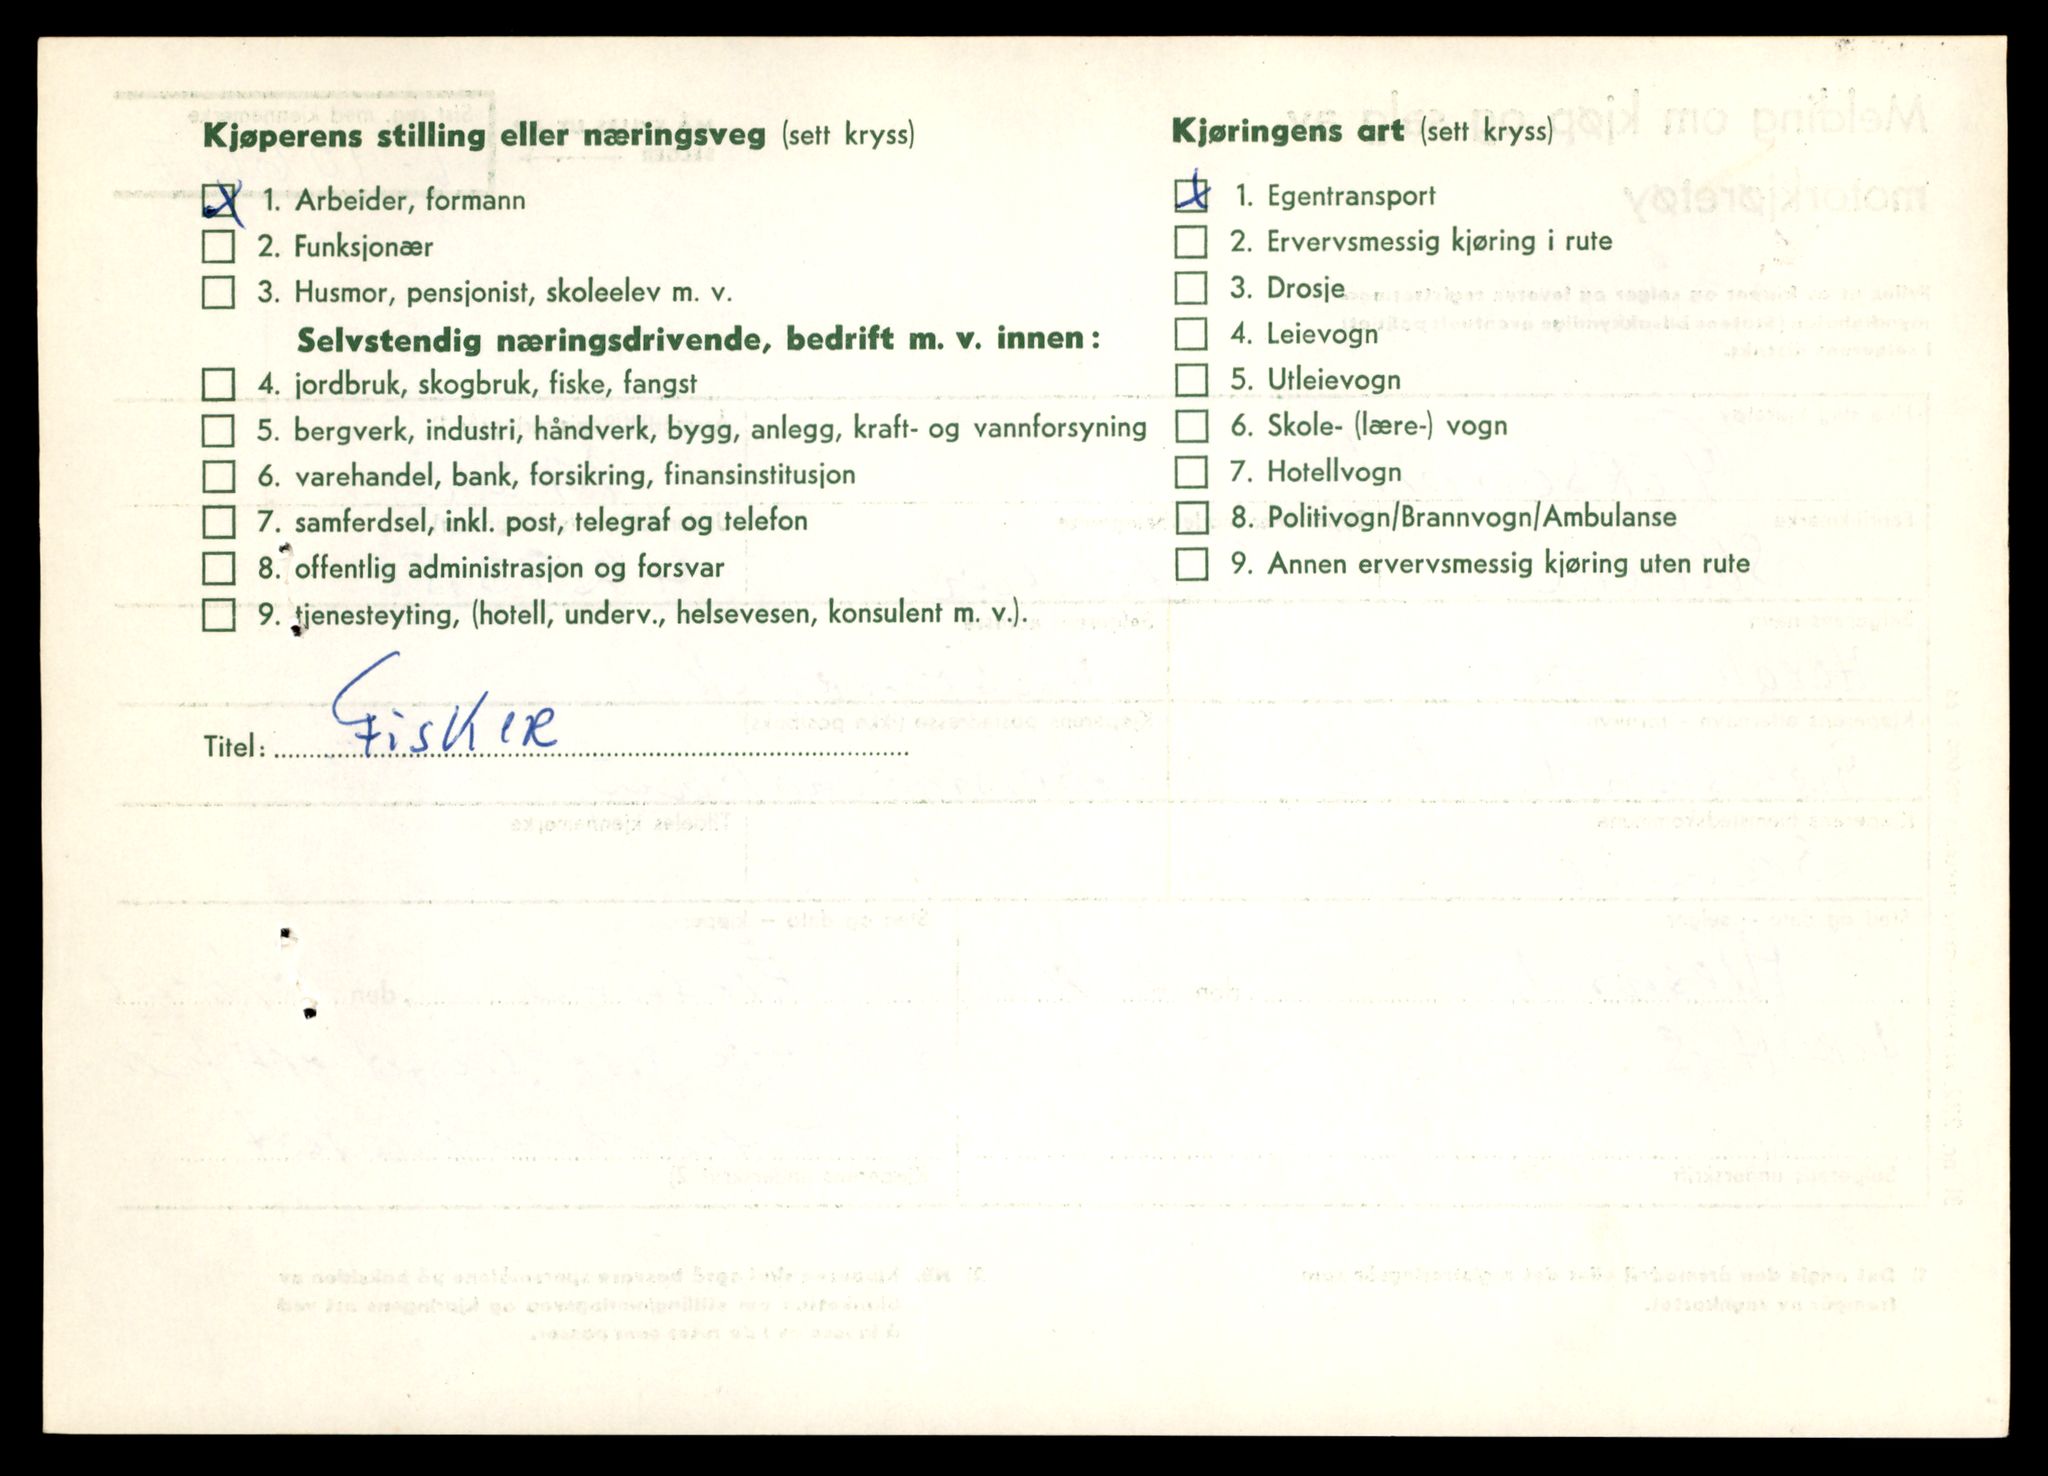 Kjøperens stilling eller næringsveg (sett kryss)
X 1. Arbeider, formann
2. Funksjonær
3. Husmor, pensjonist, skoleelev m. v.
Selvstendig næringsdrivende, bedrift m. v. innen:
4. jordbruk, skogbruk, fiske, fangst
5. bergverk, industri, håndverk, bygg, anlegg, kraft- og vannforsyning
6. varehandel, bank, forsikring, finansinstitusjon
7. samferdsel, inkl. post, telegraf og telefon
8. offentlig administrasjon og forsvar
9. tjenesteyting, (hotell, underv., helsevesen, konsulent m. v.).
Titel: Fisker
Kjøringens art (sett kryss)
X 1. Egentransport
2. Ervervsmessig kjøring i rute
3. Drosje
4. Leievogn
5. Utleievogn
6. Skole- (lære-) vogn
7. Hotellvogn
8. Politivogn/Brannvogn/Ambulanse
9. Annen ervervsmessig kjøring uten rute